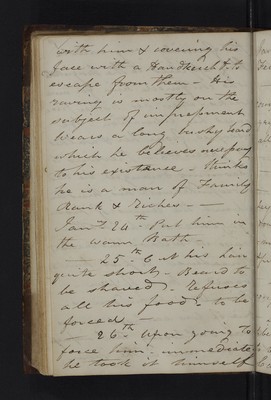 with him & covering his
face with a Handkerchf. to
escape from them - His
raving is mostly on the
subject of imprisonment
Wears a long bushy beard
which he believes necessary
to his existence - thinks
he is a man of Family
Rank & Riches -
Jany. 24th. Put him in
the warm Bath.
- 25th. Cut his hair
quite short - Beard to
be shaved. Refuses
all his food - to be
forced -
- 26th. Upon going to
force him immediately
he took it himself